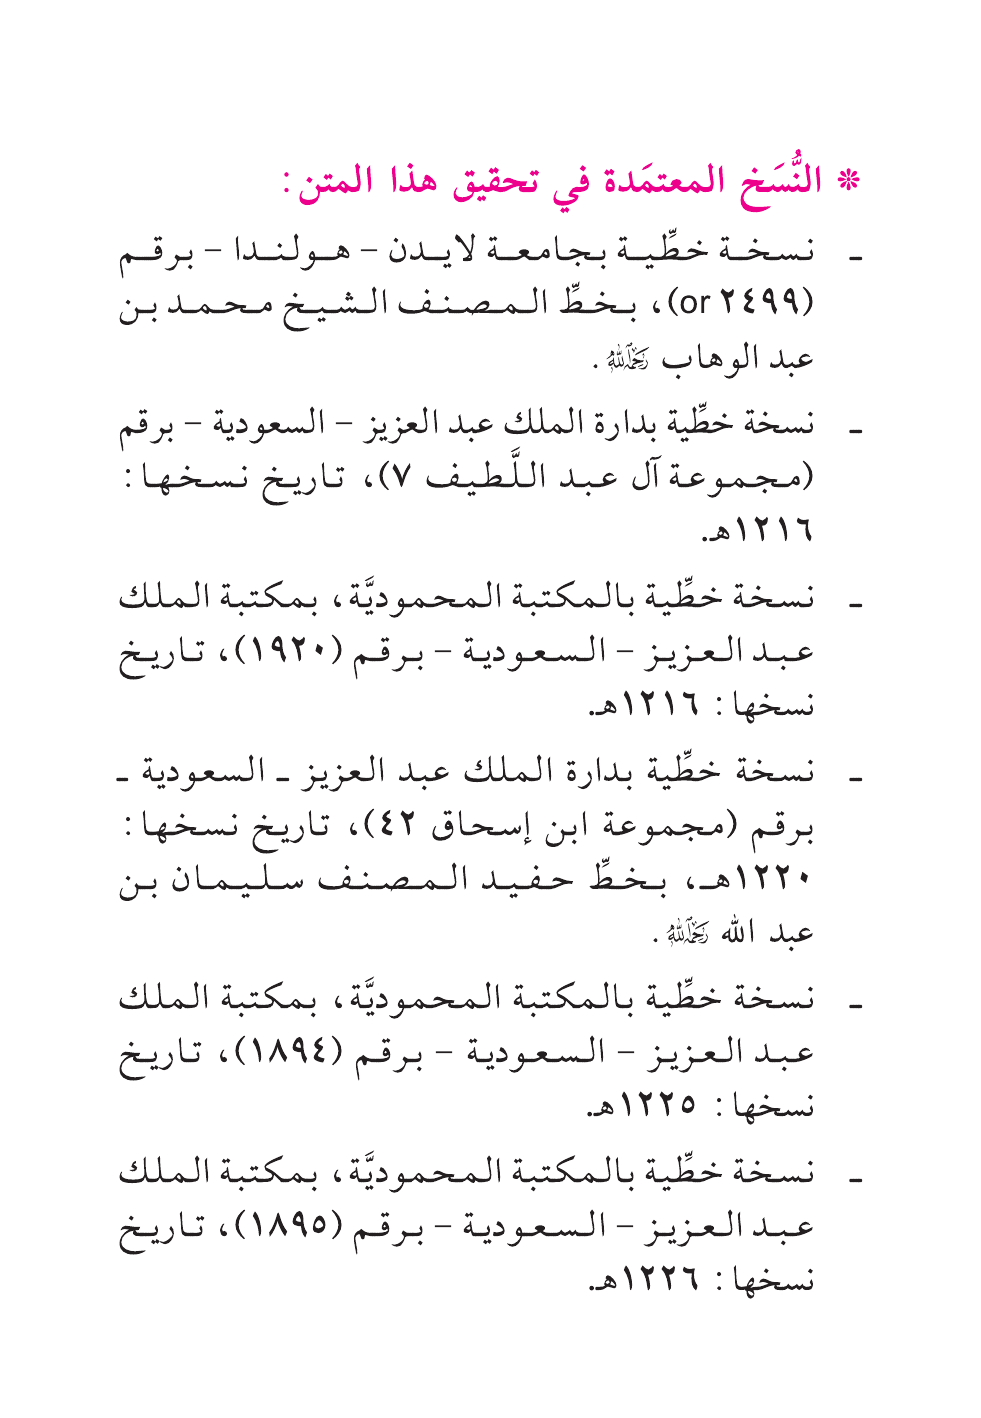 * النُّسَخ المعتمَدة في تحقيق هذا المتن:
ـ نسخة خطِّية بجامعة لايدن – هولندا – برقم
(or ٢٤٩٩)، بخطِّ المصنف الشيخ محمد بن
عبد الوهاب رَحِمَهُ اللَّهُ.
ـ نسخة خطِّية بدارة الملك عبد العزيز – السعودية – برقم
(مجموعة آل عبد اللَّطيف ٧)، تاريخ نسخها:
١٢١٦هـ.
ـ نسخة خطِّية بالمكتبة المحموديَّة، بمكتبة الملك
عبد العزيز – السعودية – برقم (١٩٢٠)، تاريخ
نسخها: ١٢١٦هـ.
ـ نسخة خطِّية بدارة الملك عبد العزيز ـ السعودية ـ
برقم (مجموعة ابن إسحاق ٤٢)، تاريخ نسخها:
١٢٢٠هـ، بخطِّ حفيد المصنف سليمان بن
عبد الله رَحِمَهُ اللَّهُ.
ـ نسخة خطِّية بالمكتبة المحموديَّة، بمكتبة الملك
عبد العزيز – السعودية – برقم (١٨٩٤)، تاريخ
نسخها: ١٢٢٥هـ.
ـ نسخة خطِّية بالمكتبة المحموديَّة، بمكتبة الملك
عبد العزيز – السعودية – برقم (١٨٩٥)، تاريخ
نسخها: ١٢٢٦هـ.